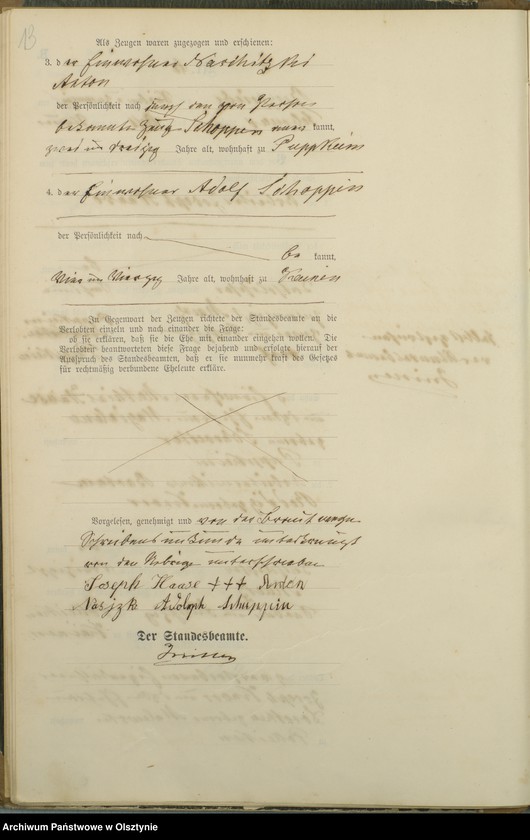 13
Als Zeugen waren zugezogen und erschienen:
3. der Einwohner
Anton
der Persönlichkeit nach durch den von Person
bekannten Zeug Schoppin kannt,
zwei und dreißig Jahre alt, wohnhaft zu Puppkeim
4. der Einwohner Adolf Schoppin
der Persönlichkeit nach
be kannt,
vier und vierzig Jahre alt, wohnhaft zu
In Gegenwart der Zeugen richtete der Standesbeamte an die
Verlobten einzeln und nach einander die Frage:
ob sie erklären, daß sie die Ehe mit einander eingehen wollen. Die
Verlobten beantworteten diese Frage bejahend und erfolgte hierauf der
Ausspruch des Standesbeamten, daß er sie nunmehr kraft des Gesetzes
für rechtmäßig verbundene Eheleute erkläre.
Vorgelesen, genehmigt und von der Braut wegen
Schreibensunkunde unterkreuzt
von den Uebrigen unterschrieben
Joseph Haase +++
Adolph Schoppin
Der Standesbeamte.
Archiwum Państwowe w Olsztynie